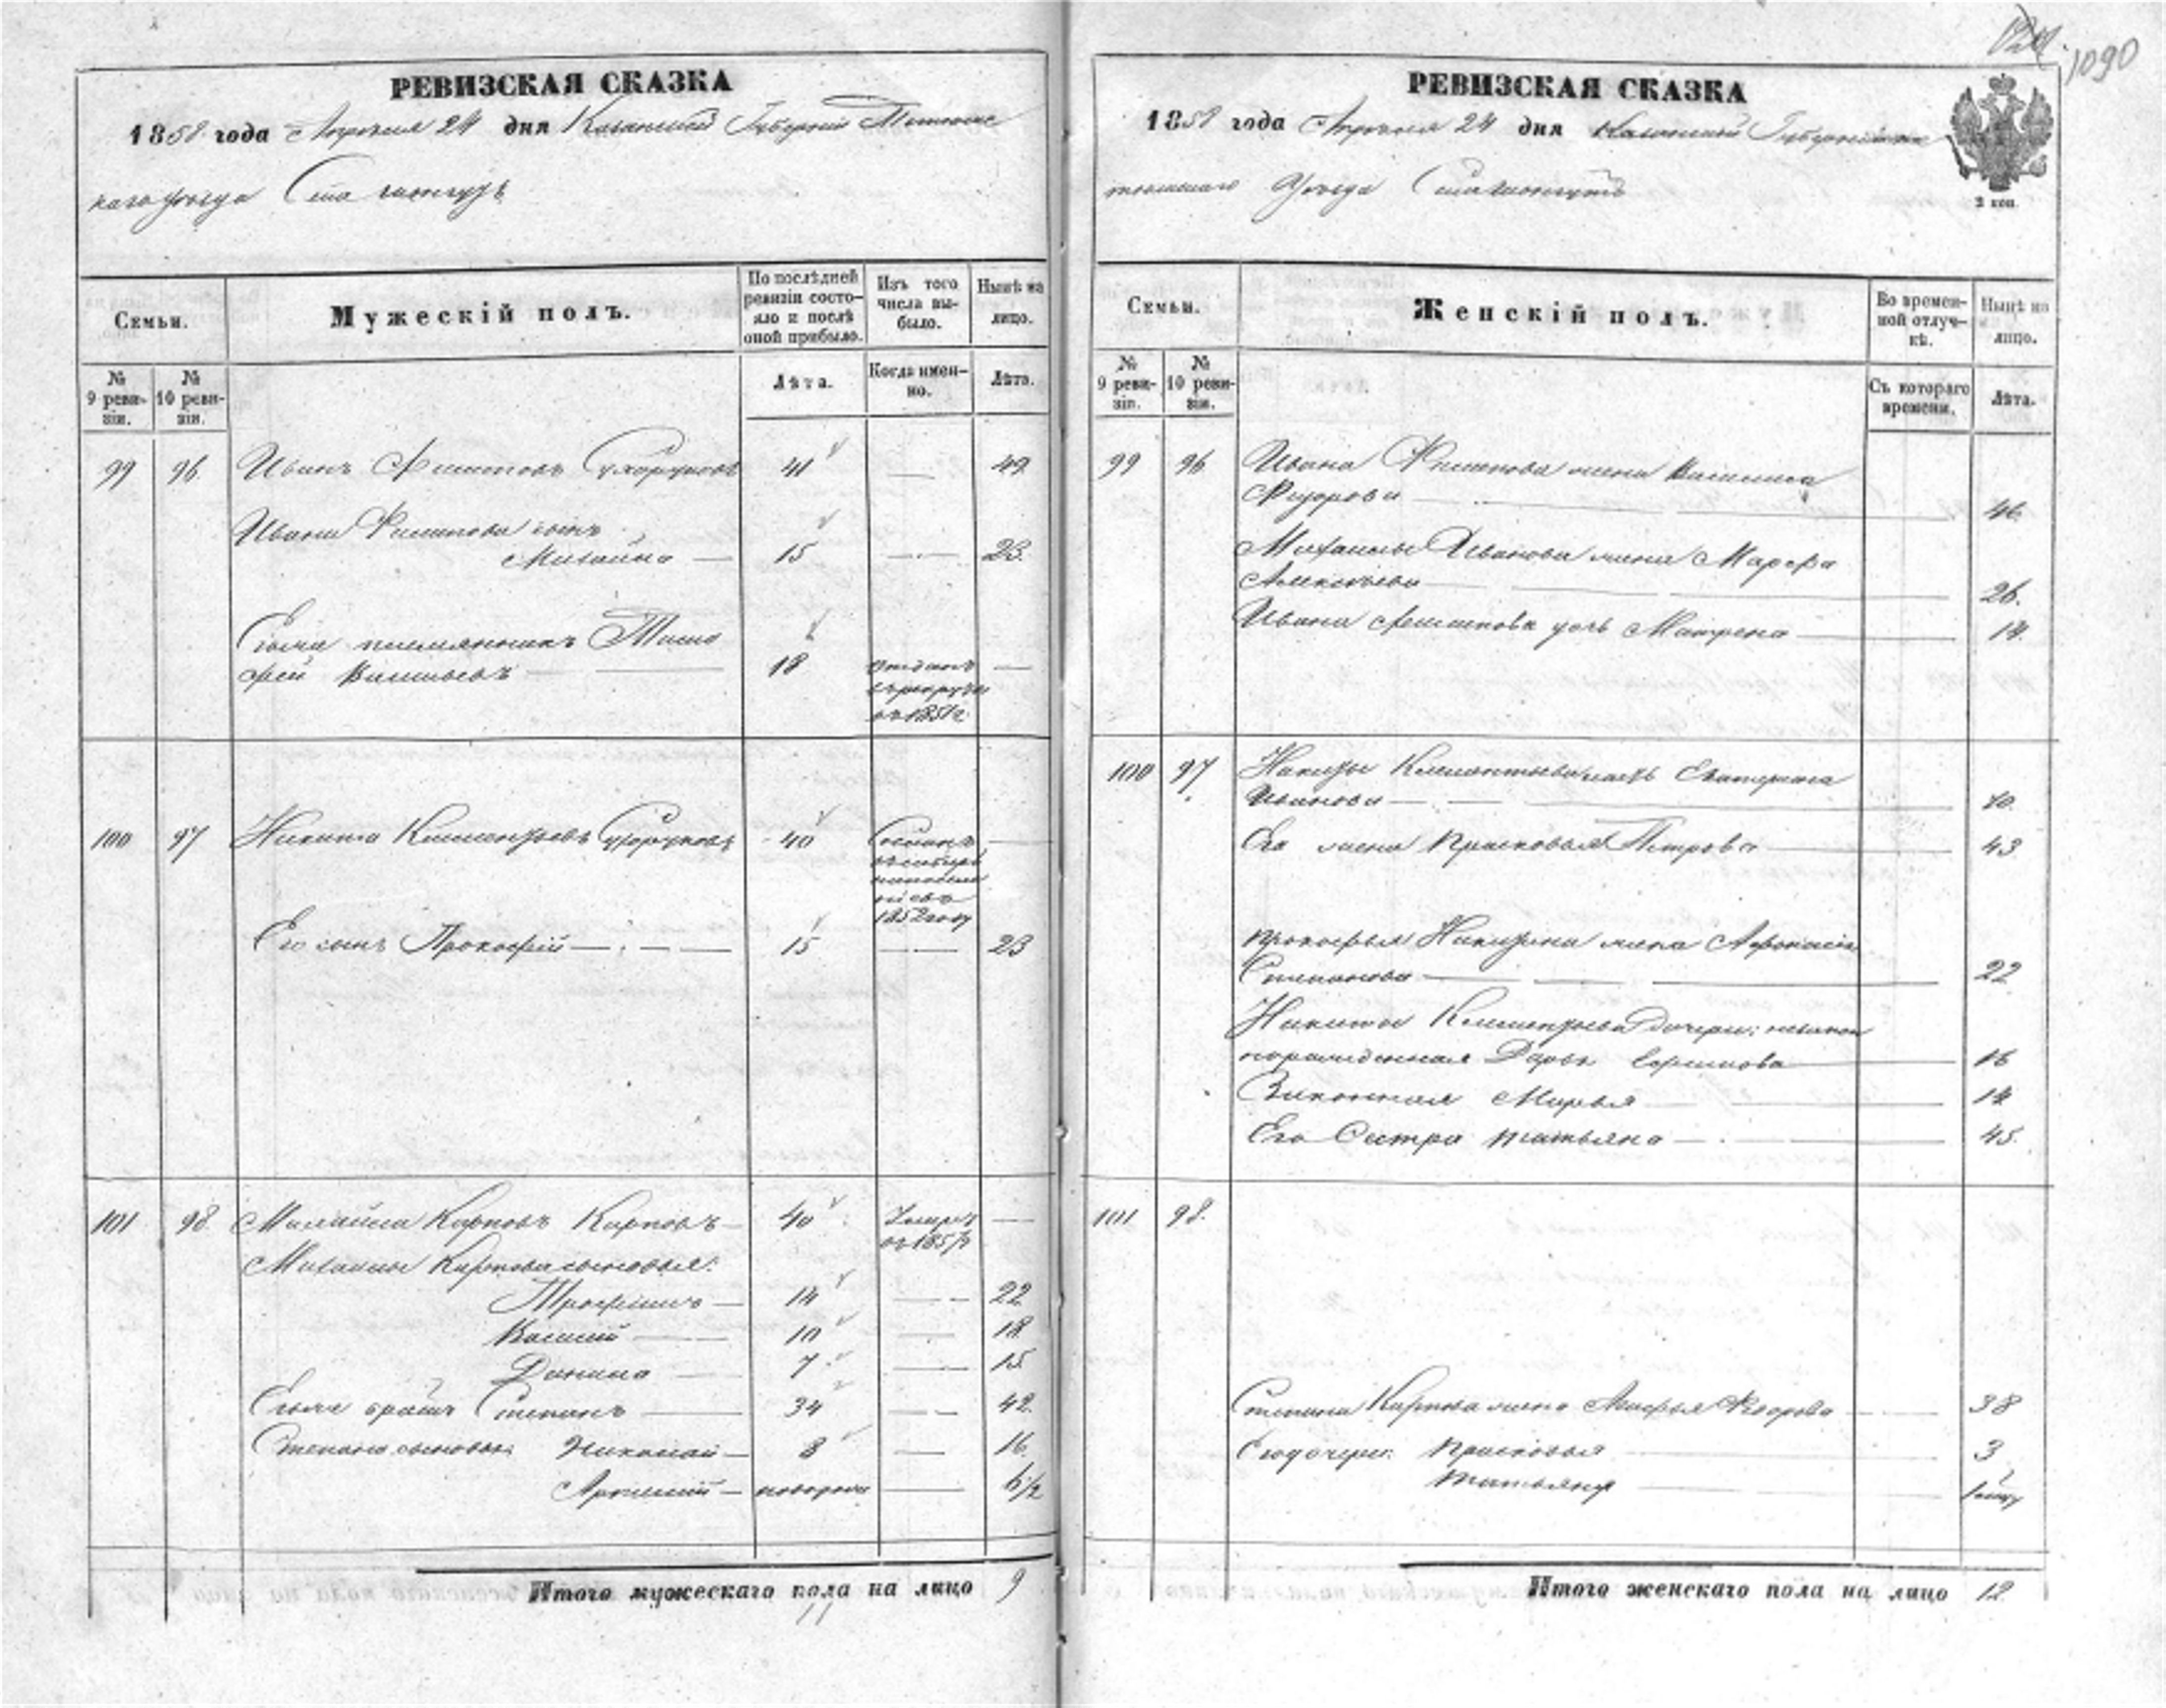 1090
РЕВИЗСКАЯ СКАЗКА
1858 года Апреля 24 дня Казанской Губернии
каго уезда
Семьи.
Мужескій полъ.
По послѣдней ревизіи состояло и послѣ оной прибыло.
Изъ того числа выбыло.
Нынѣ на лицо.
№ 9 ревизіи.
№ 10 ревизіи.
Лѣта.
Когда именно.
Лѣта.
99 96 Иванъ Филиповъ 41 — 49
Ивана Филипова сынъ
Михайла — 15 — 23.
Его племянникъ Тимо
фей Васильевъ — 18 отданъ —
въ рекруты
въ 185
100 97 Никита Климентьевъ 40 Сосланъ —
въ сибирь
на поселе
ніе въ
1852 году
Его сынъ Прокофій — 15 — 23
101 98 Михайла Карповъ Карповъ 40 Умеръ —
въ 185
Михайлы Карпова сыновья:
Трофимъ — 14 — 22
Василій — 10 — 18
Данила — 7 — 15
Его братъ Степанъ — 34 — 42
Степана сыновья: Николай — 8 — 16
— новорож — 6 1/2
Итого мужескаго пола на лицо 9
11
РЕВИЗСКАЯ СКАЗКА
1858 года Апреля 24 дня Казанской Губерніи
уезда
2 коп.
Семьи.
Женскій полъ.
Во временной отлучкѣ.
Нынѣ на лицо.
№ 9 ревизіи.
№ 10 ревизіи.
Съ котораго времени.
Лѣта.
99 96 Ивана Филипова жена Василиса
Федорова — 46
Михайлы Иванова жена Марфа
Алексѣева — 26.
Ивана Филипова дочь Матрена — 14.
100 97 Никиты Климентьева мать Екатерина
Иванова — 70
Его жена Прасковья Петрова — 43
Прокофья Никитина жена
Степанова — 22
Никиты Климентьева дочери: незакон
норожденная Дарья Ефимова — 16
Законная Марья — 14
Его Сестра Татьяна — 45.
101 98.
Степана Карпова жена Федорова — 38
Его дочери: Прасковья — 3
Татьяна —
Итого женскаго пола на лицо 12